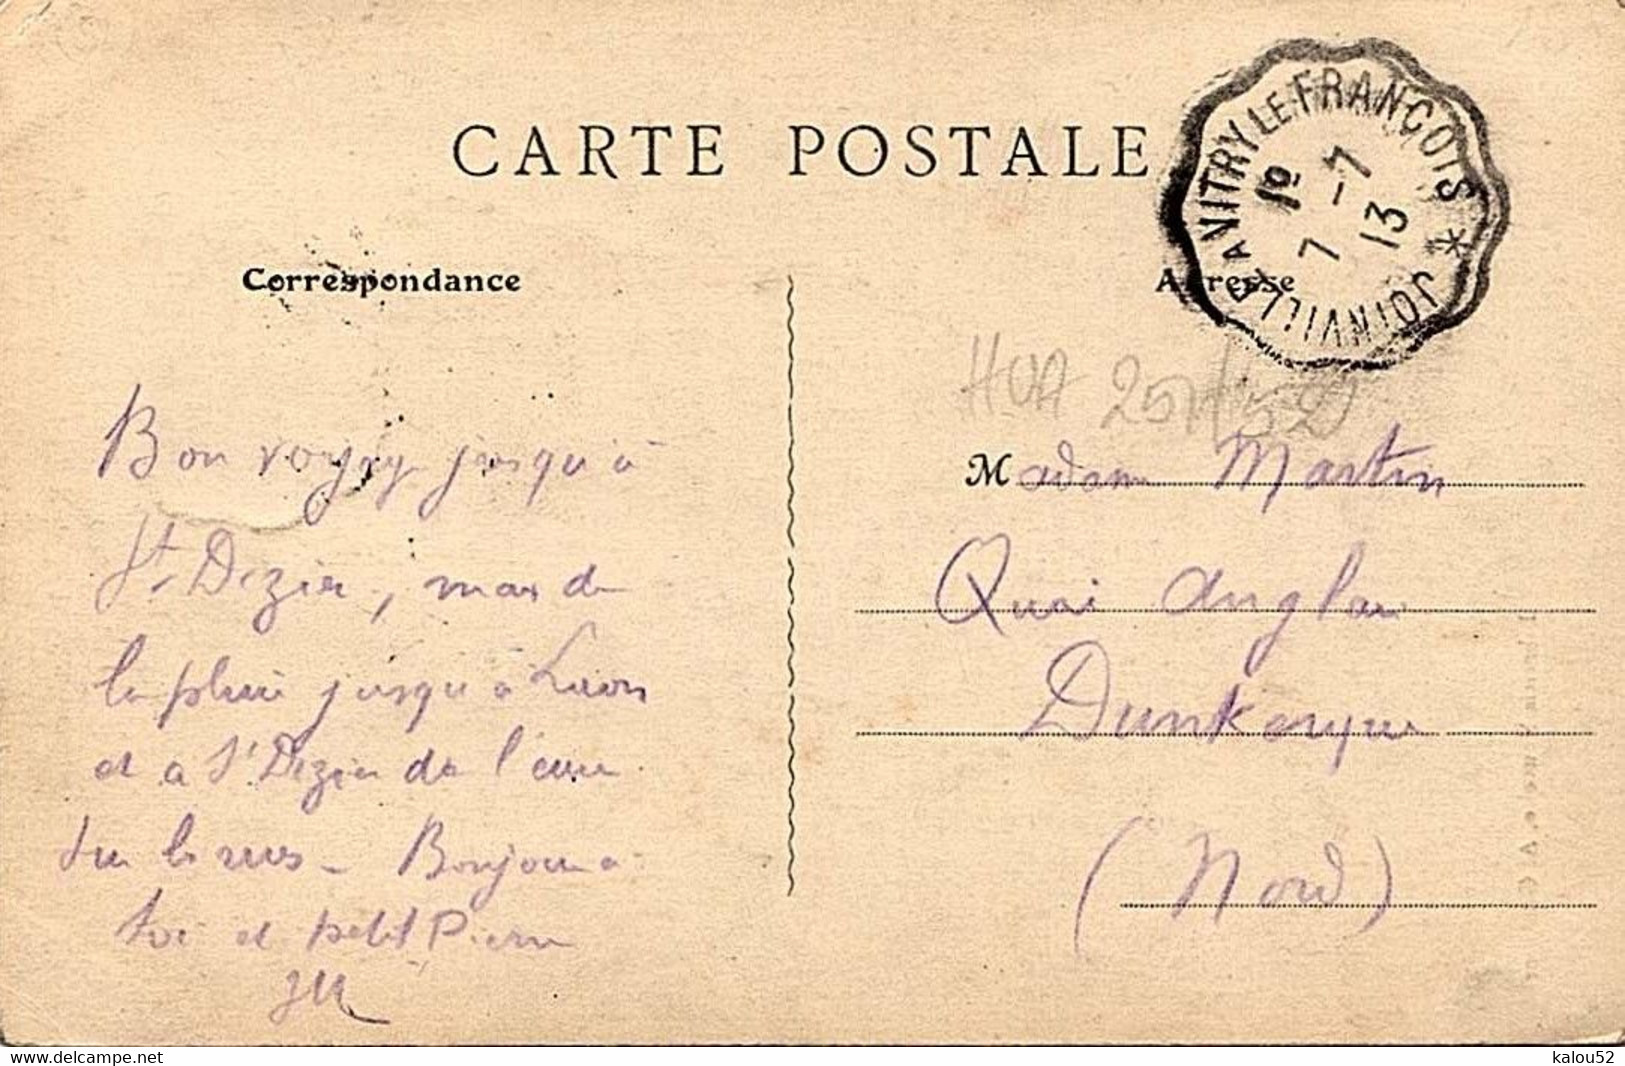 CARTE POSTALE
JOINVILLE A VITRY LE FRANÇOIS *
7 - 7
13
Correspondance
Adresse
Bon voyage jusqu'à
St Dizier, mais de
la pluie jusqu'à Laon
et a St Dizier de l'eau
sur les rues - Bonjour a
toi et petit Pierre
JM
Madame Martin
Quai Anglais
Dunkerque
(Nord)
delcampe.net
kalou52